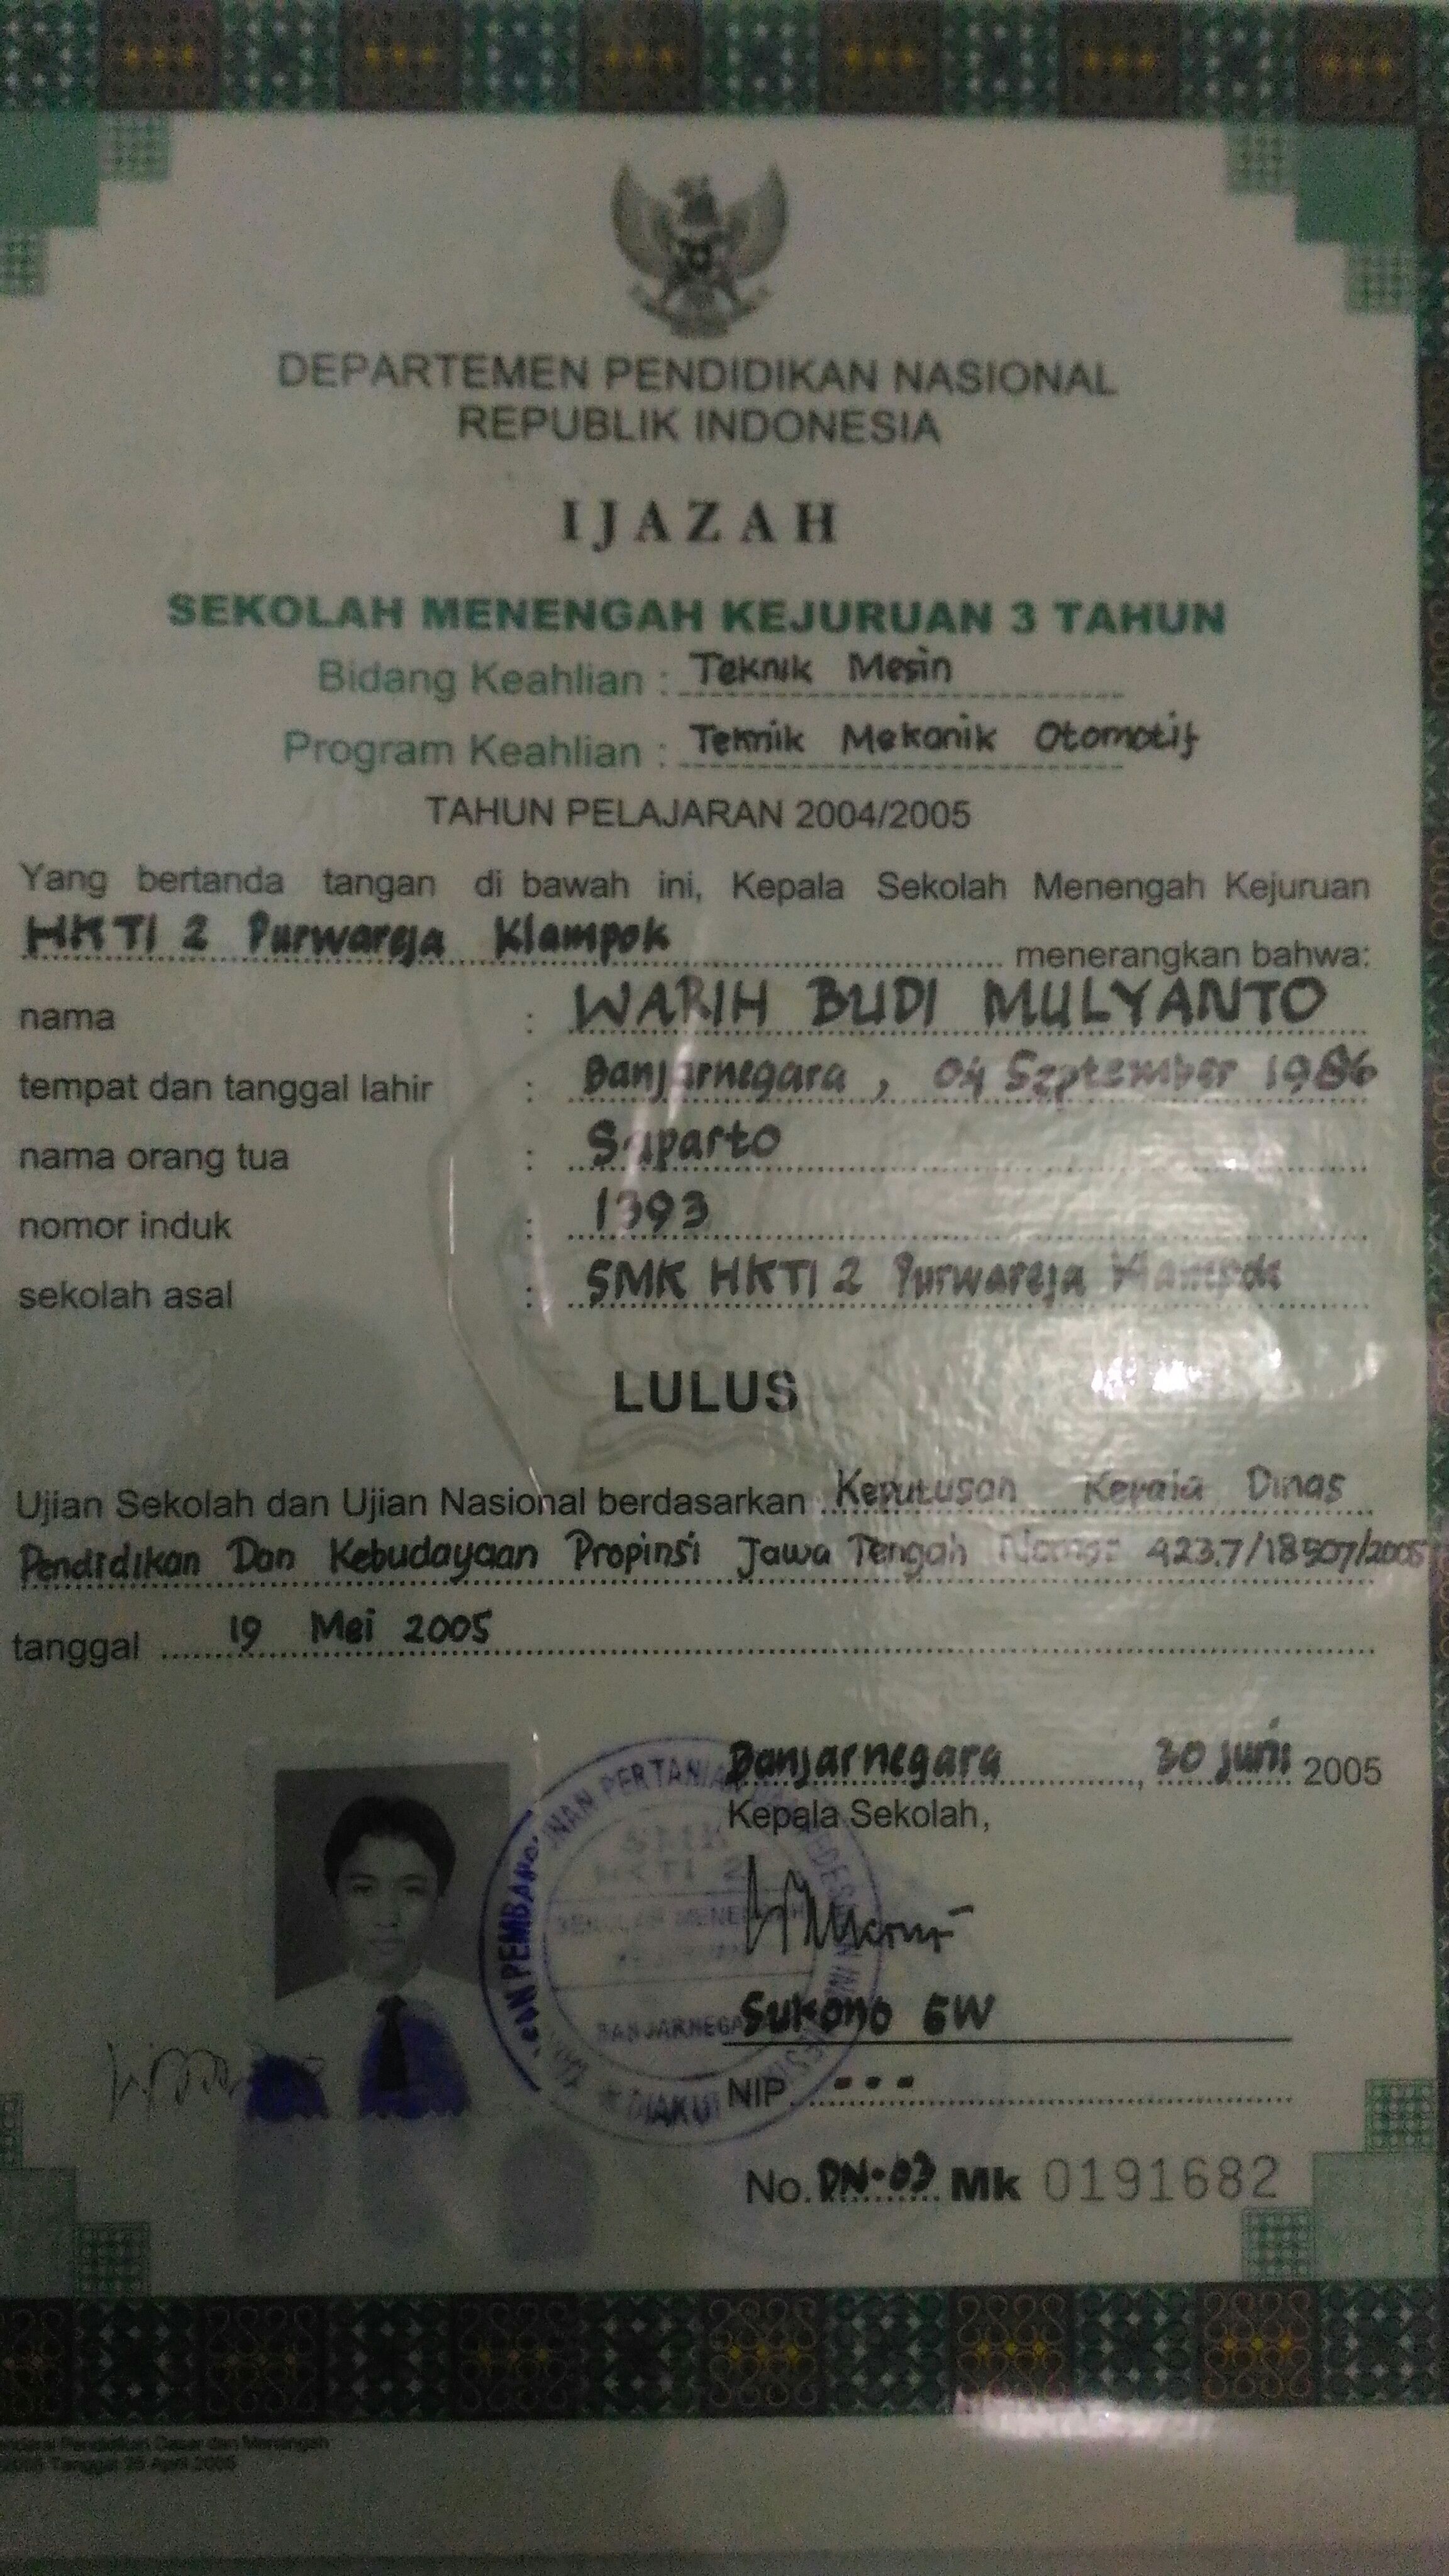 DEPARTEMEN PENDIDIKAN NASIONAL
REPUBLIK INDONESIA
IJAZAH
SEKOLAH MENENGAH KEJURUAN 3 TAHUN
Bidang Keahlian : Teknik Mesin
Program Keahlian : Teknik Mekanik Otomotif
TAHUN PELAJARAN 2004/2005
Yang bertanda tangan di bawah ini, Kepala Sekolah Menengah Kejuruan
HKTI 2 Purwareja Klampok menerangkan bahwa:
nama : WARIH BUDI MULYANTO
tempat dan tanggal lahir : Banjarnegara, 04 September 1986
nama orang tua : Suparto
nomor induk : 1393
sekolah asal : SMK HKTI 2 Purwareja Klampok
LULUS
Ujian Sekolah dan Ujian Nasional berdasarkan Keputusan Kepala Dinas
Pendidikan Dan Kebudayaan Propinsi Jawa Tengah Nomor: 423.7/18507/2005
tanggal 19 Mei 2005
Banjarnegara, 30 Juni 2005
Kepala Sekolah,
Sukono SW
NIP. ---
No. DN-03 Mk 0191682
Pendidikan Dasar dan Menengah
Tanggal 25 April 2005